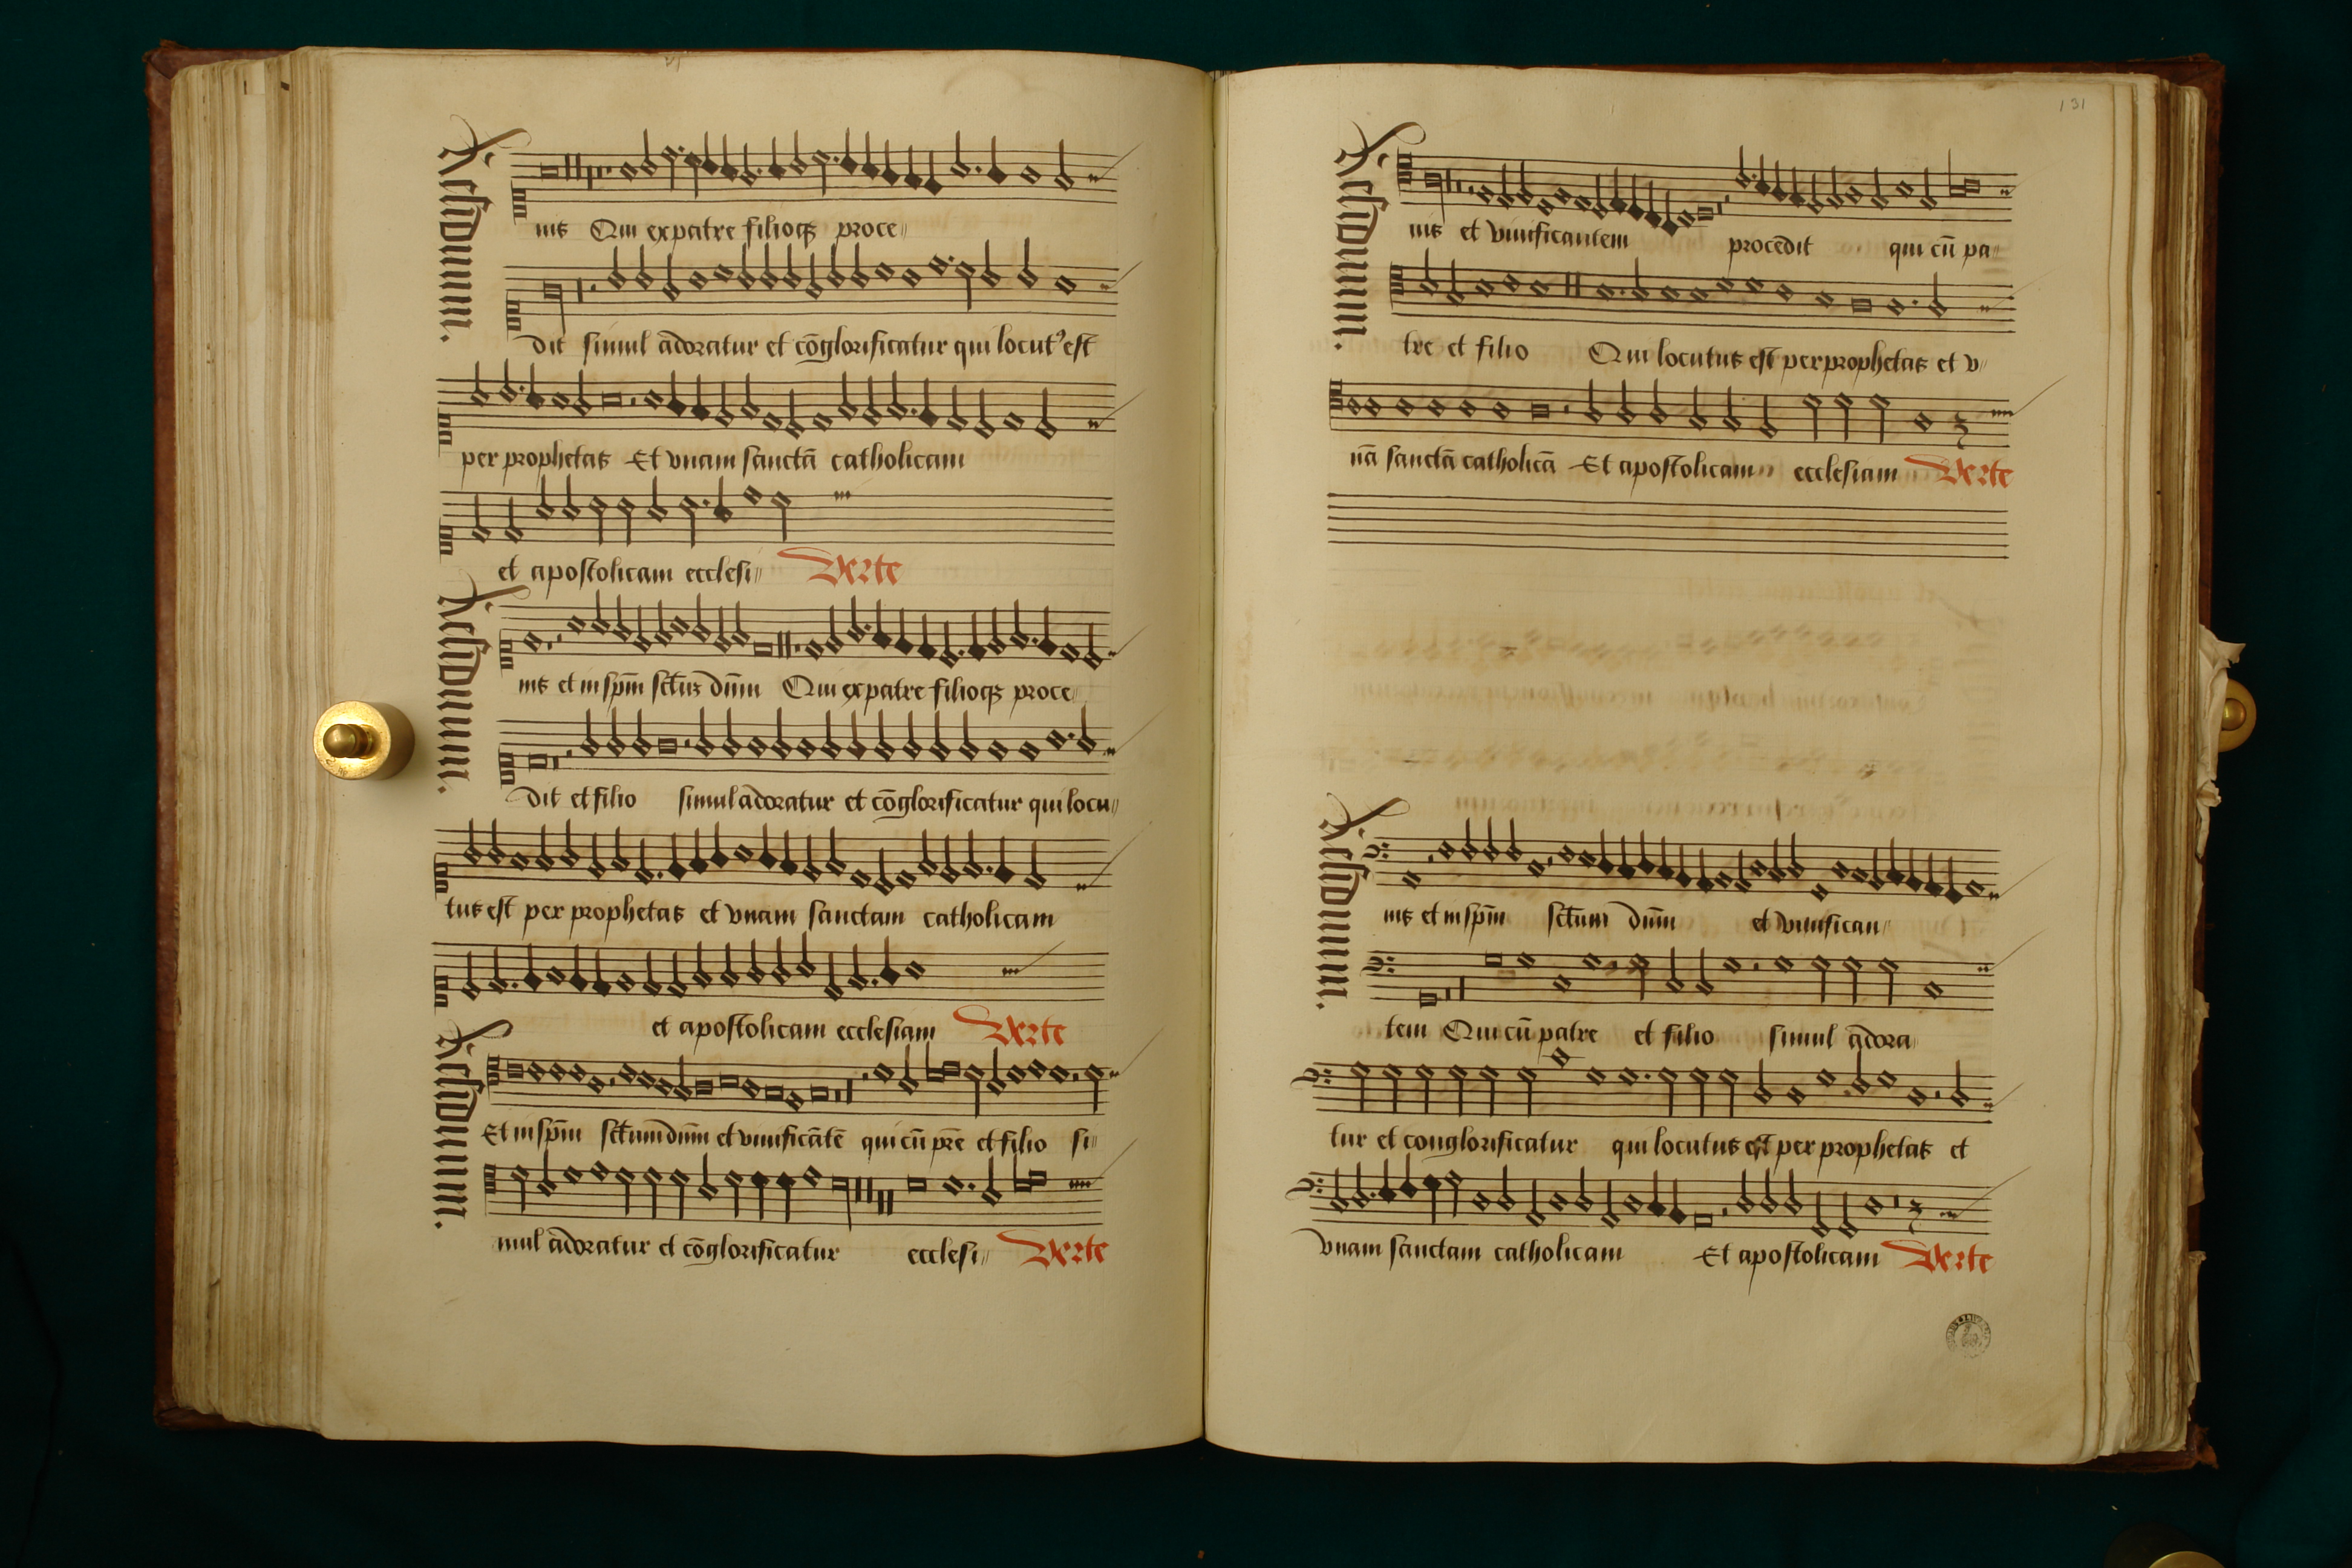 Residuum.
nis Qui ex patre filioqꝫ proce
dit simul ādoratur et cōglorificatur qui locutꝰ est
per prophetas Et vnam sanctā catholicam
et apostolicam ecclesi Verte
Residuum.
nis et in spm̄ sctū dūm Qui ex patre filioqꝫ proce
dit et filio simul adoratur et cōglorificatur qui locu
tus est per prophetas et vnam sanctam catholicam
et apostolicam ecclesiam Verte
Residuum.
Et in spm̄ sctūm dūm et viuificātē qui cū prē et filio si
mul ādoratur et cōglorificatur ecclesi Verte
131
Residuum.
nis et viuificantem procedit qui cū pa
tre et filio Qui locutus est per prophetas et v
nā sanctā catholicā Et apostolicam ecclesiam Verte
Residuum.
nis et in spm̄ sctūm dūm et viuifican
tem Qui cū patre et filio simul ādora
tur et conglorificatur qui locutus est per prophetas et
vnam sanctam catholicam Et apostolicam Verte